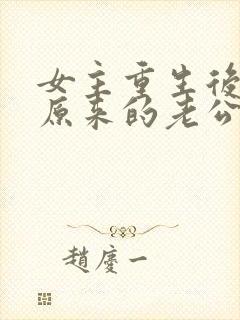 女主重生後
原来的老公
趙慶一